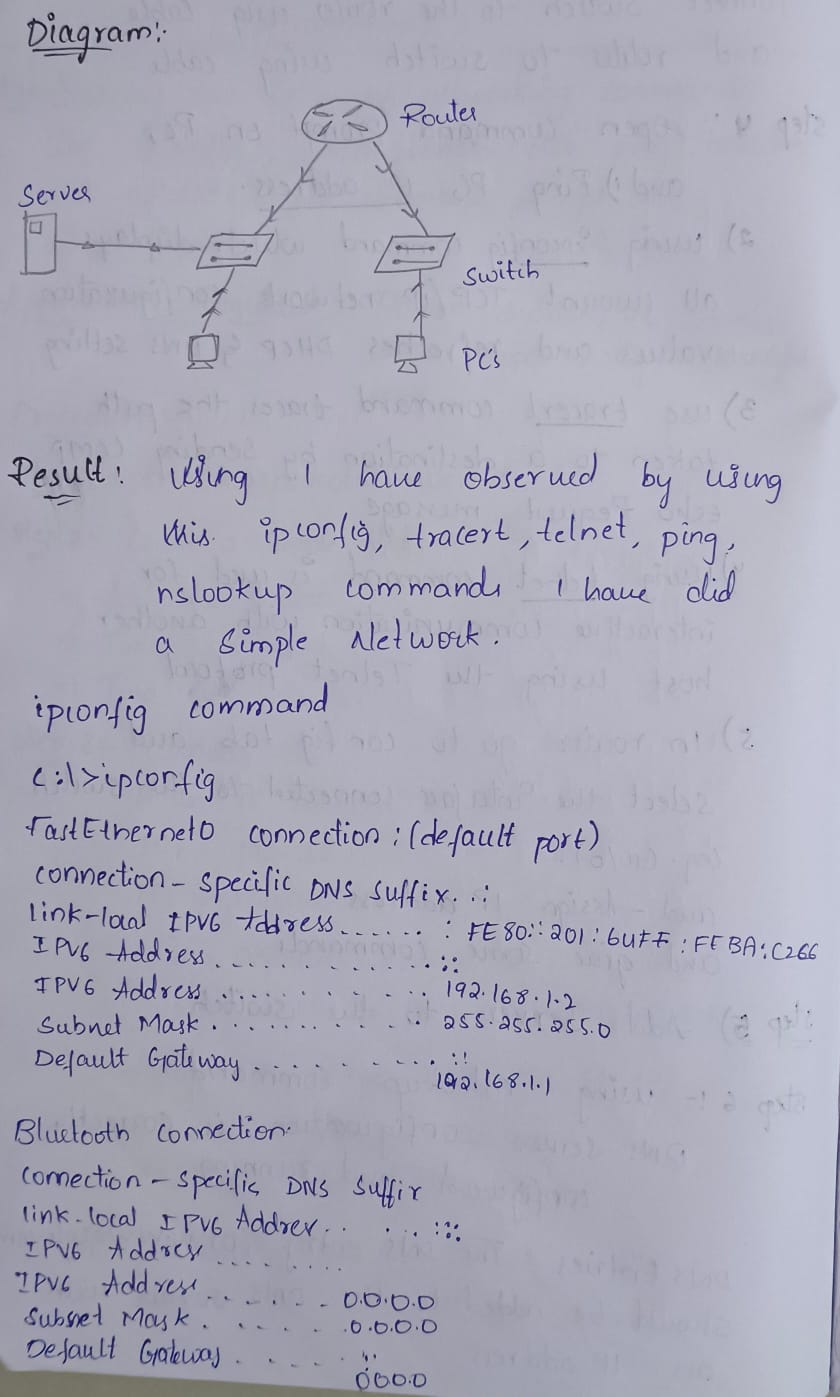 Diagram:
Router
Server
Switch
PC's
Result: Using I have observed by using
this ipconfig, tracert, telnet, ping,
nslookup commands I have did
a Simple Network.
ipconfig command
C:\>ipconfig
FastEthernet0 connection: (default port)
connection-specific DNS suffix..:
link-local IPV6 Address...... : FE80::201:64FF:FEBA:C266
IPV6 Address.............. ::
IPV6 Address............. 192.168.1.2
Subnet Mask............ : 255.255.255.0
Default Gateway......... ::
192.168.1.1
Bluetooth connection
Connection-specific DNS Suffix
link-local IPV6 Address.. ...:::
IPV6 Address........
IPV6 Address...... 0.0.0.0
Subnet Mask...... 0.0.0.0
Default Gateway..... ::
0.0.0.0